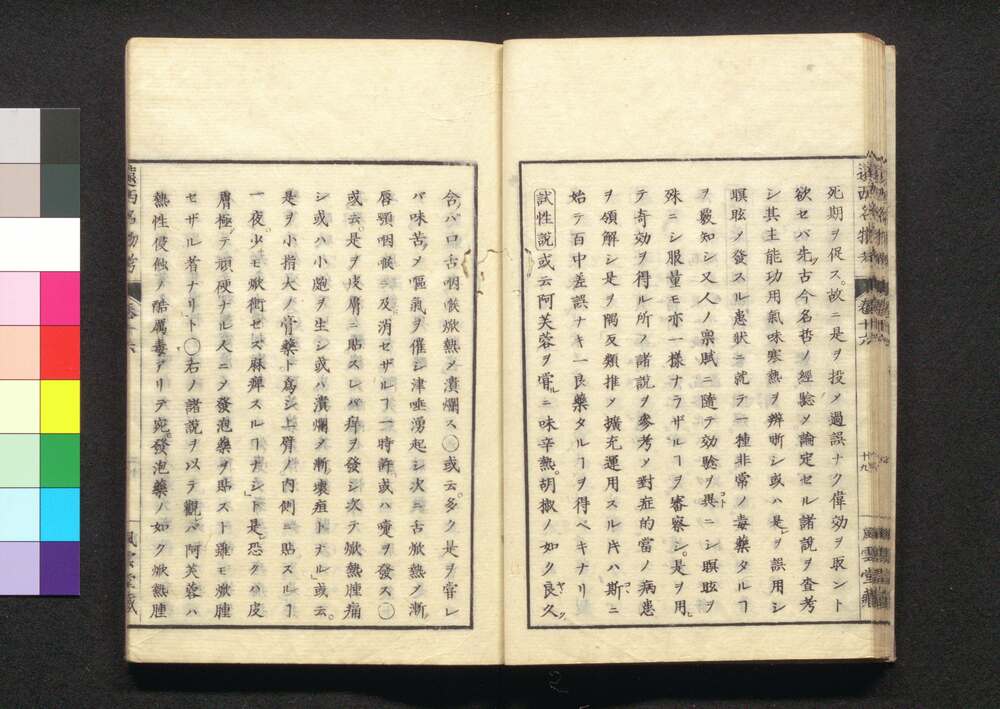 死期ヲ促ス。故ニ是ヲ投メ過誤ナク偉効ヲ取ント
欲セバ先ヅ古今名哲ノ經驗メ論定セル諸説ヲ査考
シ其主能功用氣味寒熱ヲ辨晣シ或ハ是ヲ誤用シ
瞑眩ノ發スル患狀ニ就テ一種非常ノ毒藥タルヿ
ヲ數知シ又人ノ稟賦ニ隨テ効驗ヲ異ニシ瞑眩ヲ
殊ニシ服量モ亦一様ナラザルヿヲ審察シ。是ヲ用ヒ
テ奇効ヲ得ル所ノ諸説ヲ參考メ對症的當ノ病患
ヲ領解シ是ヲ隅反類推メ擴充運用スル𪜈ハ斯ニ
始テ百中差誤ナキ一良藥タルヿヲ得ベキナリ
試性説 或云阿芙蓉ヲ嘗ルニ味辛熱。胡椒ノ如ク良久
含バ口舌咽喉焮熱メ潰爛ス○或云。多ク是ヲ嘗レ
バ味苦メ嘔氣ヲ催シ津唾湧起シ次ニ舌焮熱メ漸
唇顎咽喉ニ及消セザルヿ一時許。或ハ嚏ヲ發ス○
或云。是ヲ皮膚ニ貼スレバ痒ヲ發シ次テ焮熱腫痛
シ或ハ小皰ヲ生シ或ハ潰爛メ漸壊疽トナル」或云。
是ヲ小指大ノ膏藥ト爲シ上臂ノ内側ニ貼スルヿ
一夜。少モ焮衝セズ麻痺スルヿナシ」ト是恐クハ皮
膚極テ頑硬ナル人ニメ發泡藥ヲ貼スト雖モ焮腫
セザル者ナリト○右ノ諸説ヲ以テ觀バ阿芙蓉ハ
熱性侵蝕ノ酷厲毒アリテ宛發泡藥ノ如ク焮熱腫